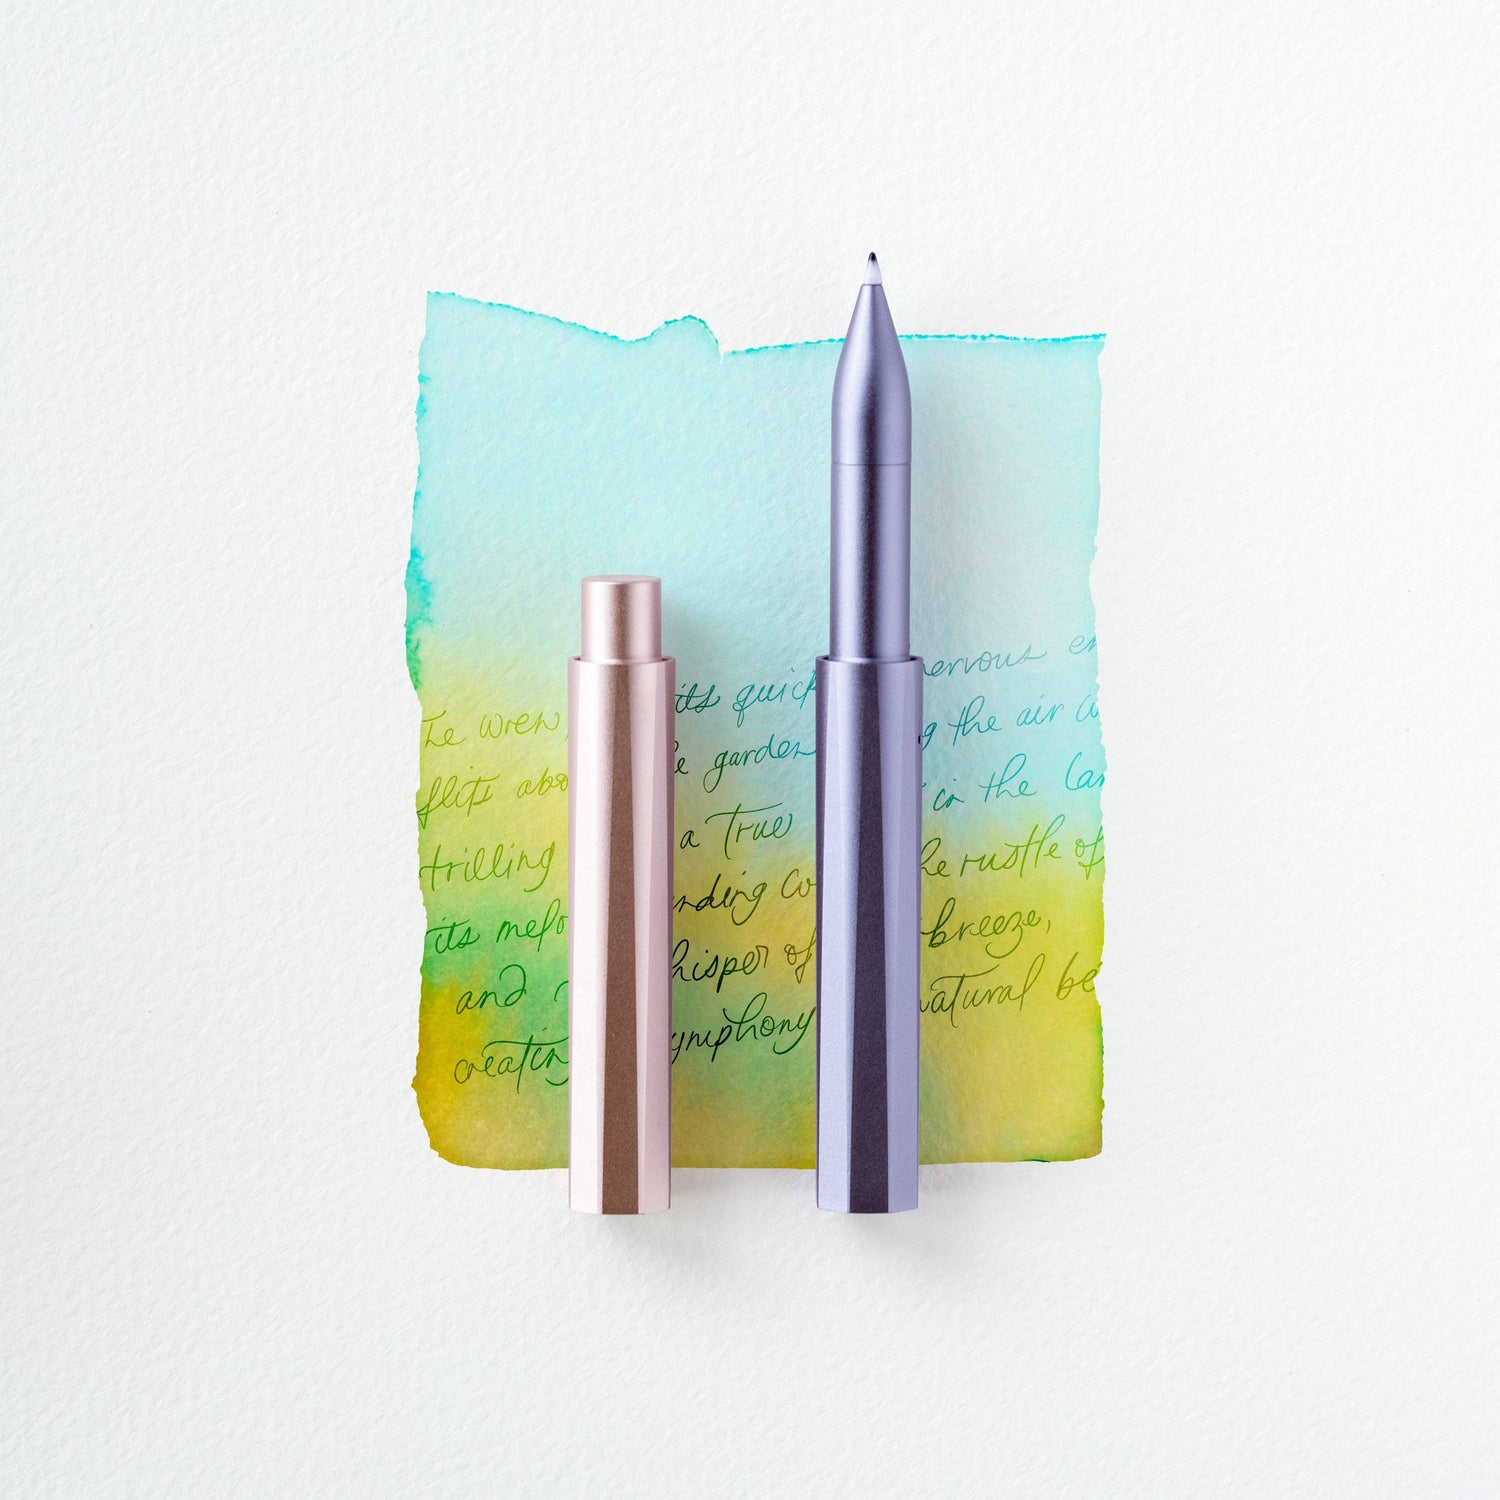 The wren, its quick nervous en
flits abo e garden g the air a
trilling a true in the lar
its melo nding co he rustle of
and hisper of breeze,
creatin ymphony natural be